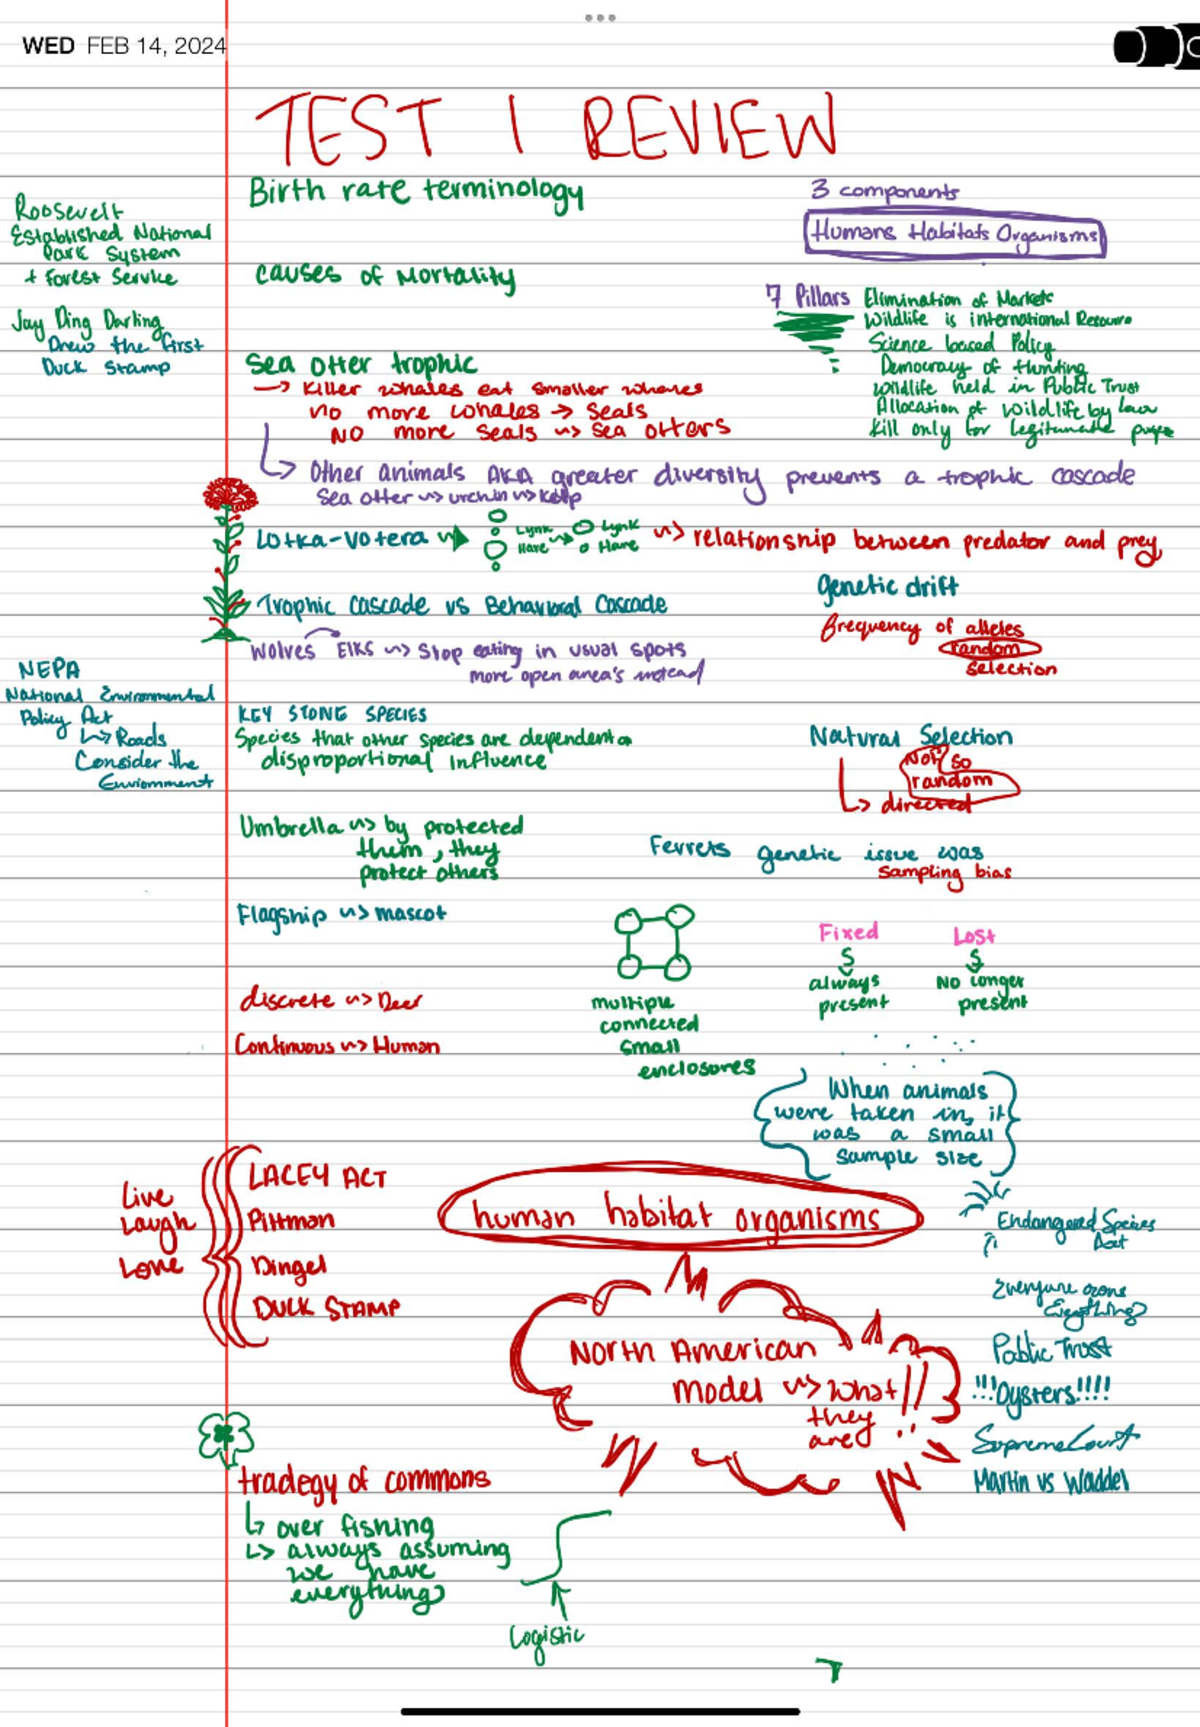 WED FEB 14, 2024
TEST 1 REVIEW
Roosevelt
Established National
Park System
+ Forest Service
Jay Ding Darling
Drew the first
Duck Stamp
Birth rate terminology
causes of Mortality
3 components
Humans Habitats Organisms
7 Pillars Elimination of Markets
Wildlife is international Resource
Science based Policy
Democracy of Hunting
Wildlife held in Public Trust
Allocation of Wildlife by law
Kill only for legitimate
Sea otter trophic
→ Killer whales eat smaller whales
no more whales → seals
NO more seals → sea otters
↳ Other animals AKA greater diversity prevents a trophic cascade
Sea otter → urchin → kelp
Lotka-Votera → Lynk → Lynk → relationship between predator and prey
Hare Hare
Trophic Cascade vs Behavioral Cascade
Wolves Elks → Stop eating in usual spots
more open area's instead
genetic drift
frequency of alleles
random
selection
NEPA
National Environmental
Policy Act
↳ Roads
Consider the
Enviornment
KEY STONE SPECIES
Species that other species are dependent on
disproportional influence
Natural Selection
Not so
random
↳ directed
Umbrella → by protected
them, they
protect others
Ferrets genetic issue was
sampling bias
Flagship → mascot
discrete → Deer
Continuous → Human
multiple
connected
small
enclosures
Fixed Lost
always No longer
present present
When animals
were taken in, it
was a small
sample size
Live
Laugh
Love
LACEY ACT
Pittman
Dingel
DUCK STAMP
human habitat organisms
North American
model → what
they
are !!
Endangered Species
Act
Everyone owns
Everything
Public Trust
!!!Oysters!!!!
Supreme Court
Martin vs Waddel
tradegy of commons
↳ over fishing
↳ always assuming
we have
everything
Logistic